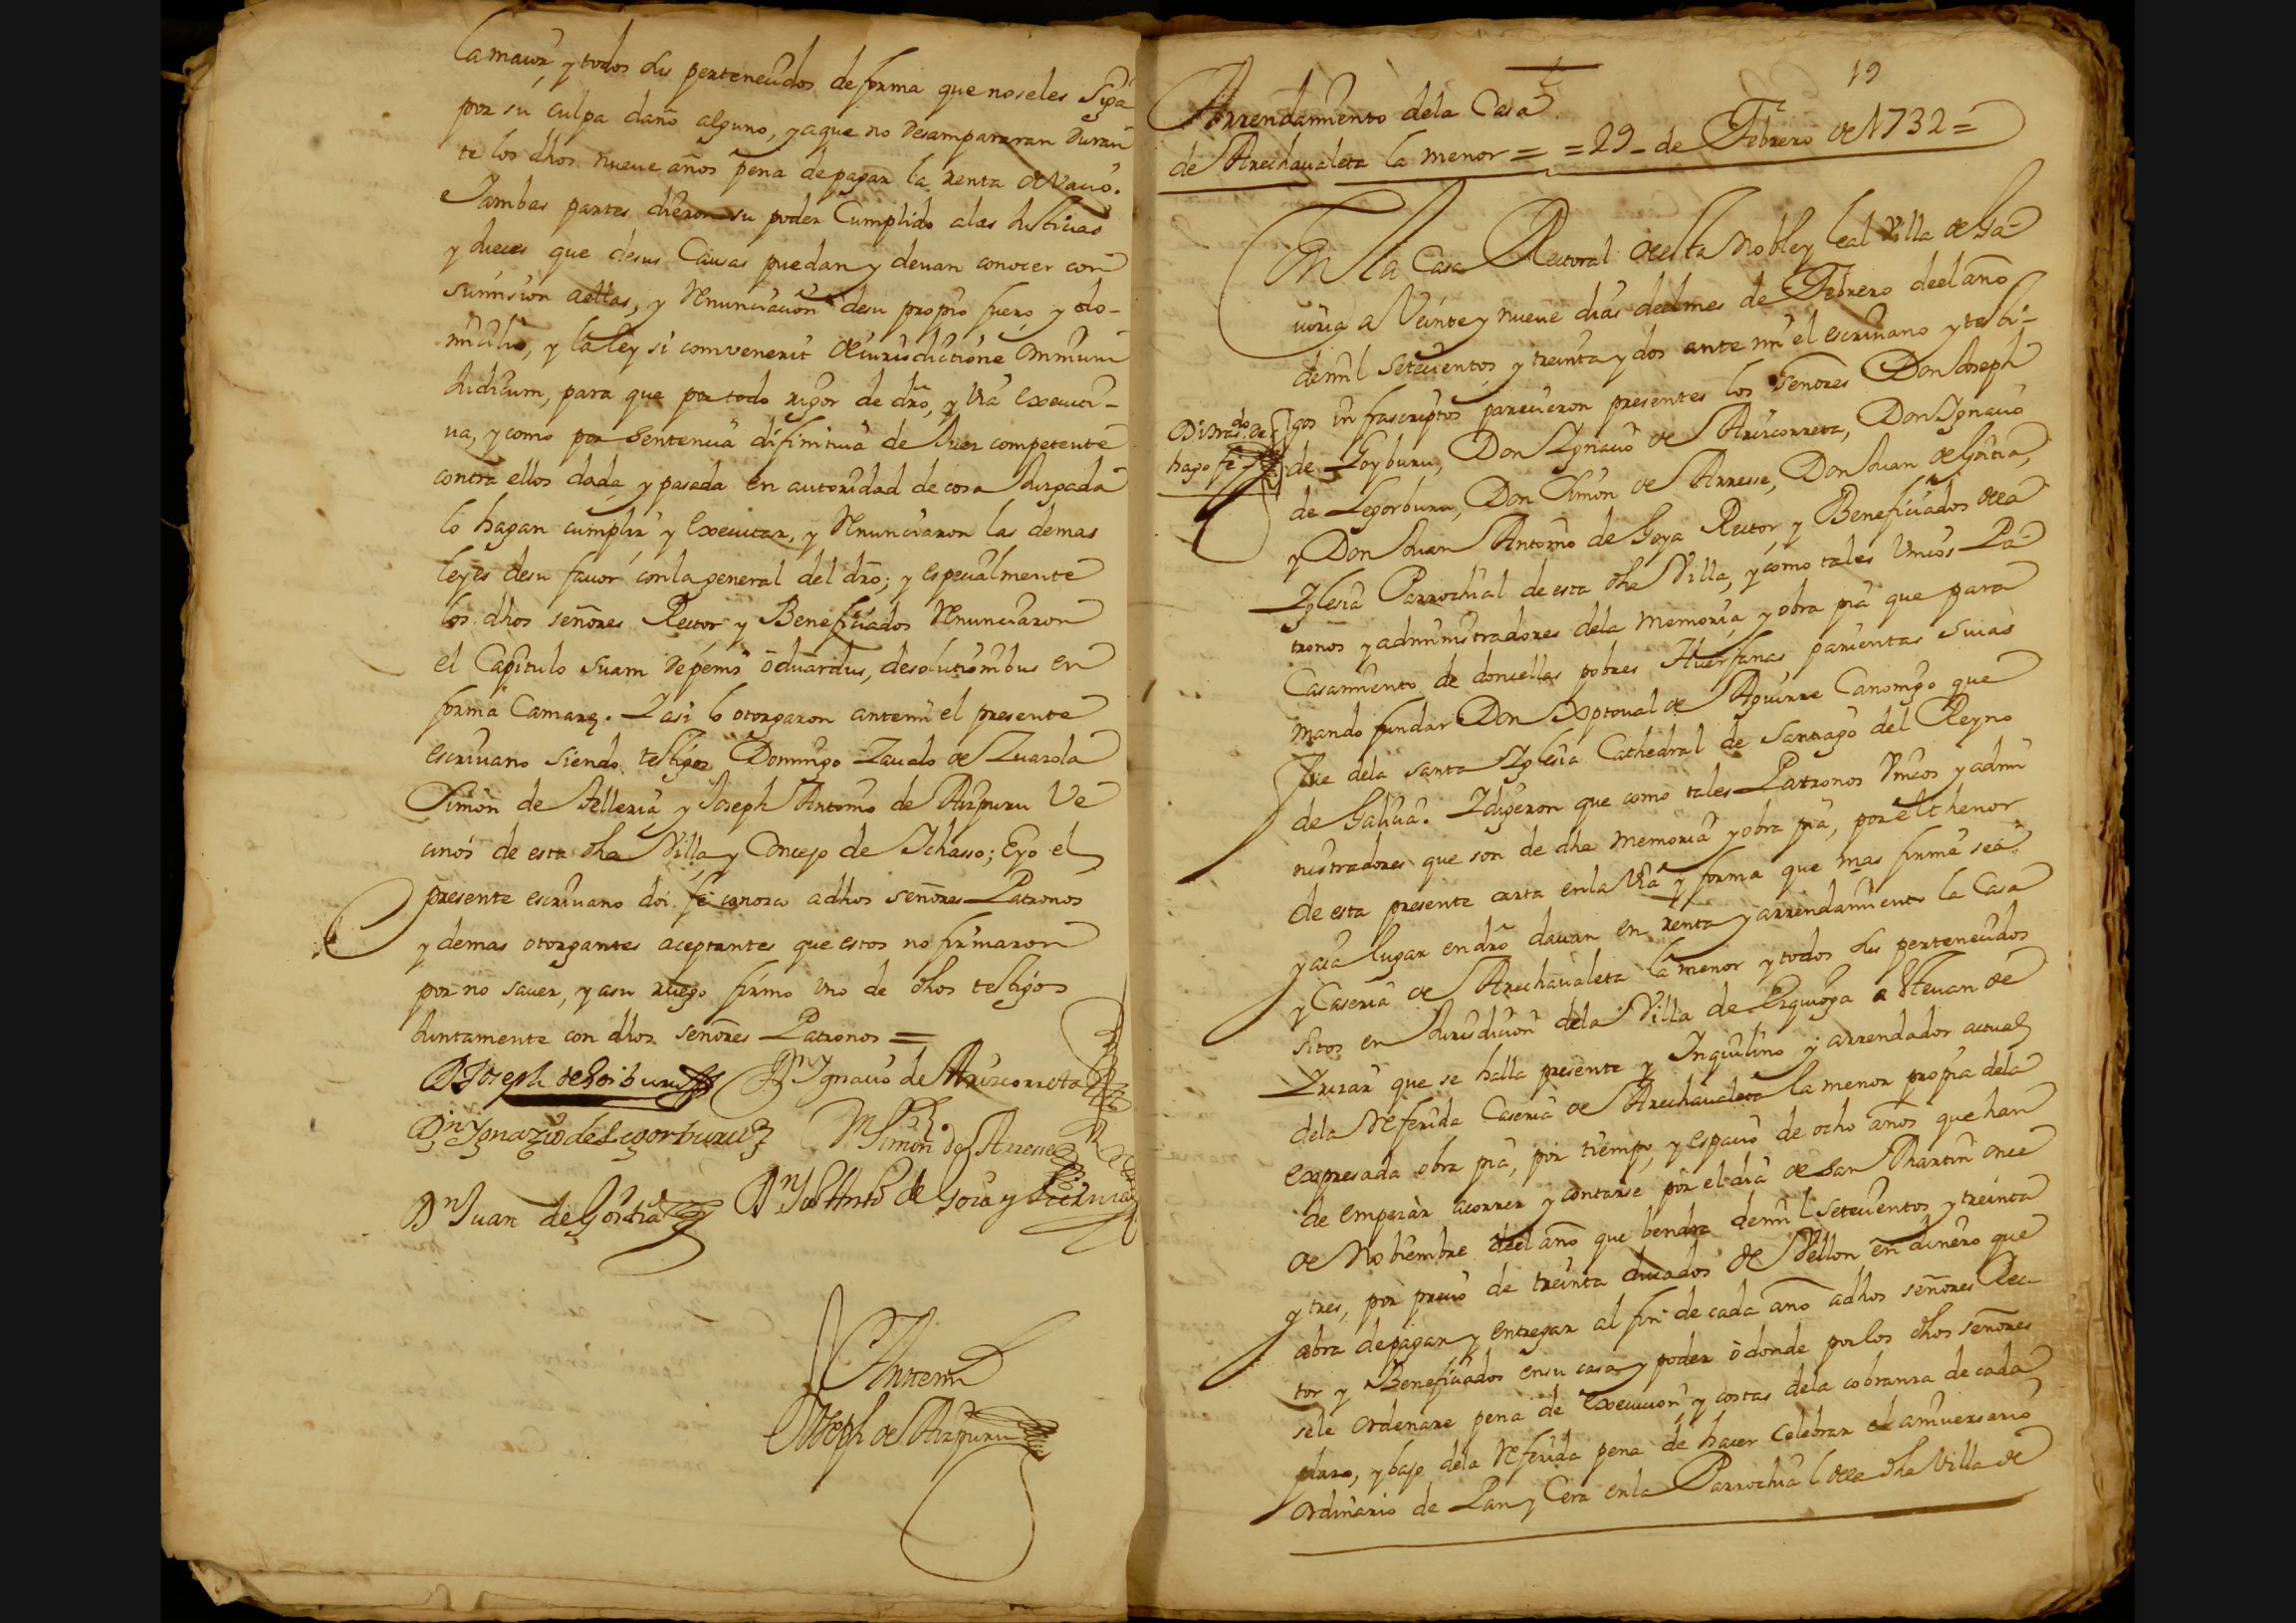 la maior, y todos sus pertenecidos de forma que no se les siga
por su culpa daño alguno, y a que no desampararan duran
te los dhos nueve años pena de pagar la renta de vacio.
e Jambas partes dieron su poder Cumplido a las Justicias
y Jueces que de sus Causas puedan y devan conocer con
sumision a ellas, y Renunciacion de su propio fuero y do-
micilio, y la ley si combenerit de iurisdictione omnium
Judicum, para que por todo rigor de dro, y via executi-
va, y como por sentencia difinitiva de Juez competente
contra ellos dada y pasada en autoridad de cosa Juzgada
lo hagan cumplir y executar, y Renunciaron las demas
leyes de su favor con la general del dro; y especialmente
los dhos señores Rector y Beneficiados Renunciaron
el Capitulo suam de penis oduardus, de solutionibus en
forma Camarę. Y asi lo otorgaron ante mi el presente
escrivano siendo testigos Domingo Zavalo de Zuazola
Simon de Telleria y Joseph Antonio de Aizpuru Ve
cinos de esta dha Villa y Concejo de Ichasso; E yo el
presente escrivano doi fe conozco a dhos señores Patronos
y demas otorgantes aceptantes que estos no firmaron
por no saver, y a su ruego firmo uno de dhos testigos
Juntamente con dhos señores Patronos =
D Joseph de Goiburu Dn Ygnacio de Arizcorreta
Dn Ygnazio de Legorburu Dn Simon de Arresse
Dn Juan de Gorostia Dn Jua Antto de Goia y
Ante mi
Joseph de Aizpuru
19
Arrendamiento de la Casa
de Arechavaleta la menor = = 29 - de Febrero de 1732 =
En la Casa Rectoral de esta Noble y leal Villa de Ga-
viria a Veinte y nueve dias de el mes de Febrero de el año
de mil setecientos y treinta y dos ante mi el escrivano y testi-
gos infrascriptos parecieron presentes los Señores Don Joseph
de Goyburu, Don Ygnacio de Arizcorreta, Don Ygnacio
de Legorburu, Don Simon de Arresse, Don Juan de Gorostia,
y Don Juan Antonio de Goya Rector, y Beneficiados de la
Yglesia Parrochial de esta dha Villa, y como tales Unicos Pa-
tronos y administradores de la Memoria, y obra pia que para
Casamiento de doncellas pobres Huerfanas parientas suias
mando fundar Don Xptoval de Aguirre Canonigo que
fue de la santa Yglesia Cathedral de Santiago del Reyno
de Galicia. Y digeron que como tales Patronos Unicos y admi
nistradores que son de dha memoria y obra pia, por el thenor
de esta presente carta en la via y forma que mas firme sea
y aia lugar en dro davan en renta y arrendamiento la Casa
y Caseria de Arechavaleta la menor y todos sus pertenecidos
sitos en Jurisdicion de la Villa de Ezquioga a Estevan de
Yrizar que se halla presente y Inquilino y arrendador actual
de la Referida Caseria de Arechavaleta la menor propia de la
expresada obra pia, por tiempo, y espacio de ocho años que han
de empezar a correr y contarse por el dia de San Martin once
de Nobiembre de el año que bendra de mil setecientos y treinta
y tres, por precio de treinta ducados de Vellon en dinero que
abra de pagar y entregar al fin de cada año a dhos señores Rec-
tor y Beneficiados en su casa y poder o donde por los dhos señores
se le ordenare pena de execucion y costas de la cobranza de cada
plazo, y bajo de la Referida pena de hacer celebrar el aniversario
ordinario de Pan y Cera en la Parrochial de la dha Villa de
hago fe